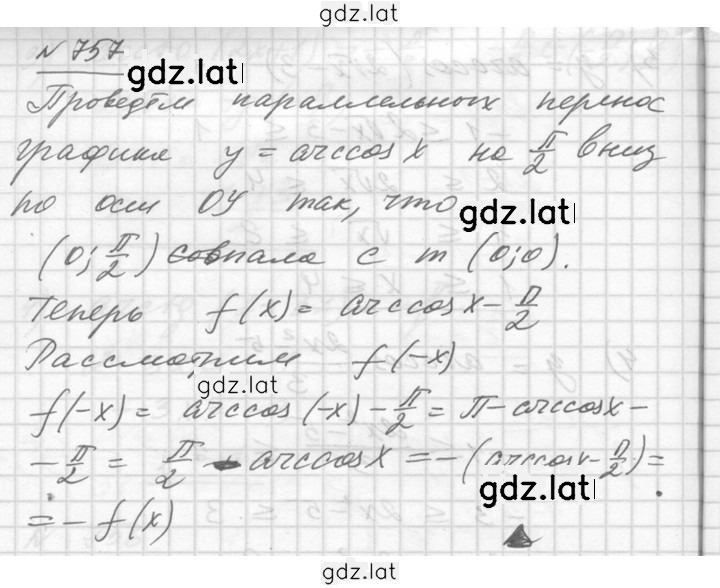 gdz.lat
N 757
gdz.lat
Проведём параллельных перенос
графика y = arccos x на π/2 вниз
по оси OY так, что
gdz.lat
(0; π/2) совпала с т (0;0).
Теперь f(x) = arccos x - π/2
Рассмотрим f(-x)
gdz.lat
f(-x) = arccos (-x) - π/2 = π - arccos x -
- π/2 = π/2 - arccos x = -(arccos x - π/2) =
gdz.lat
= - f(x)
gdz.lat